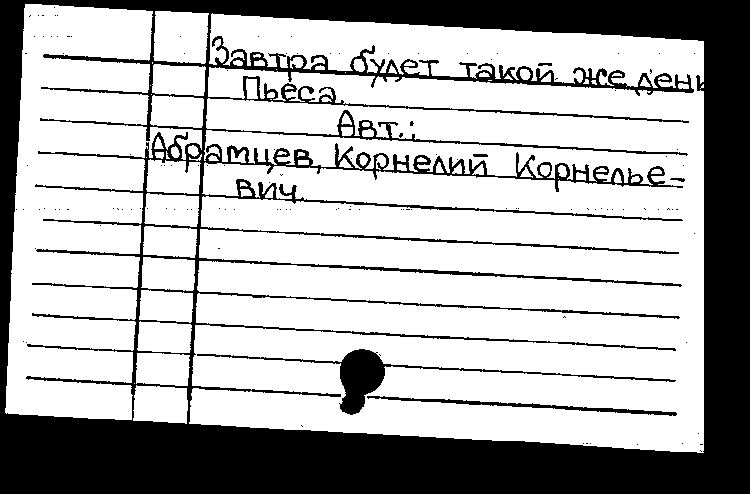 Завтра будет такой же день
Пьеса.
Авт.:
Абрамцев, Корнелий Корнелье-
вич.